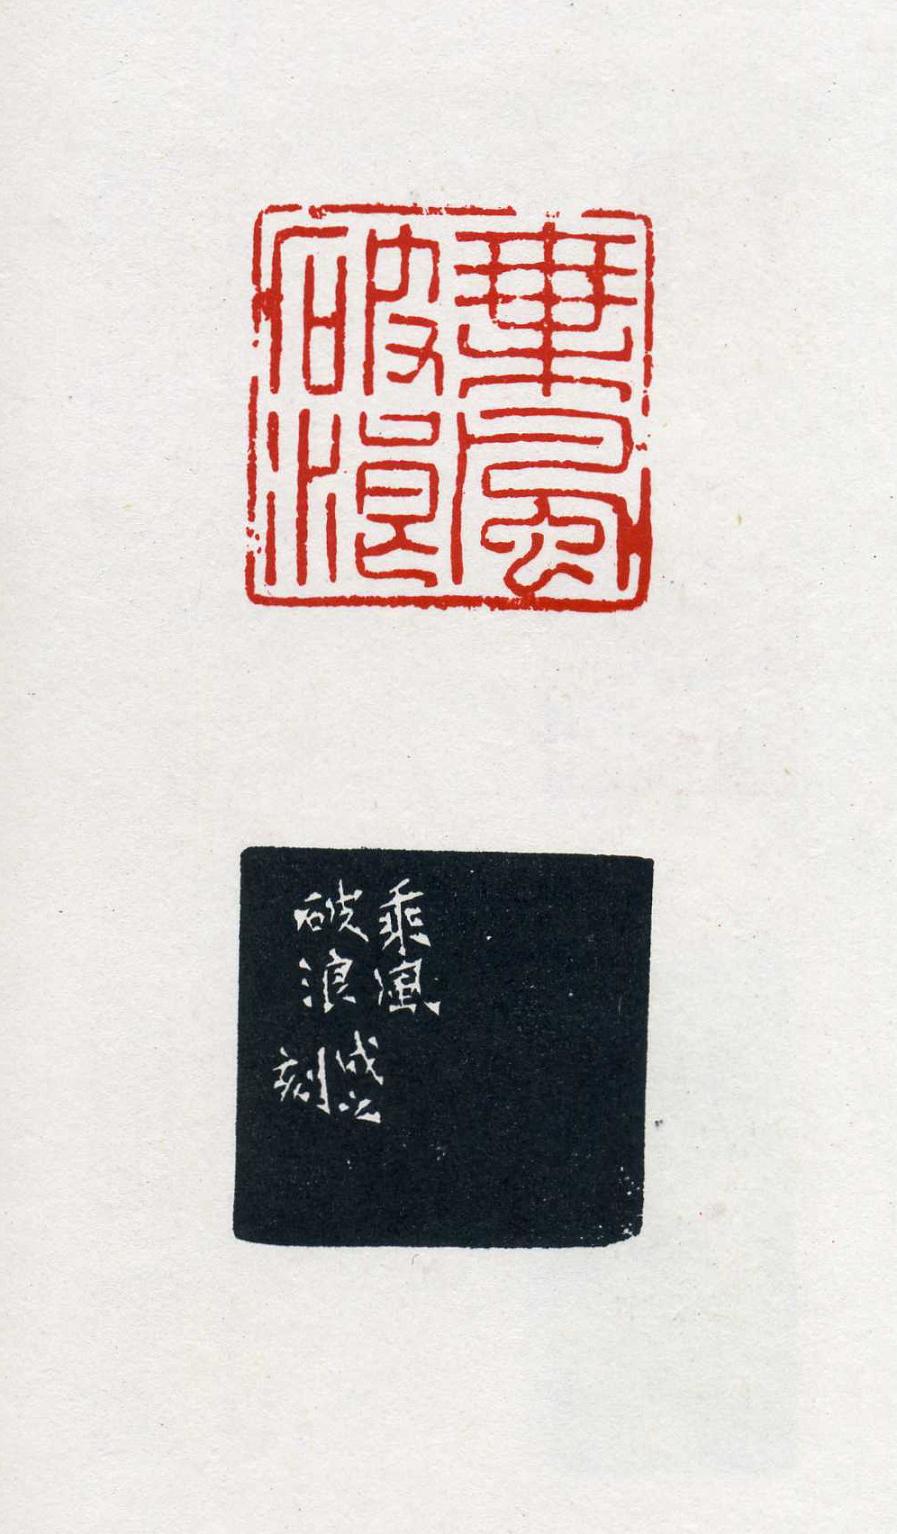 乘風
破浪
乘風
破浪
成之
刻